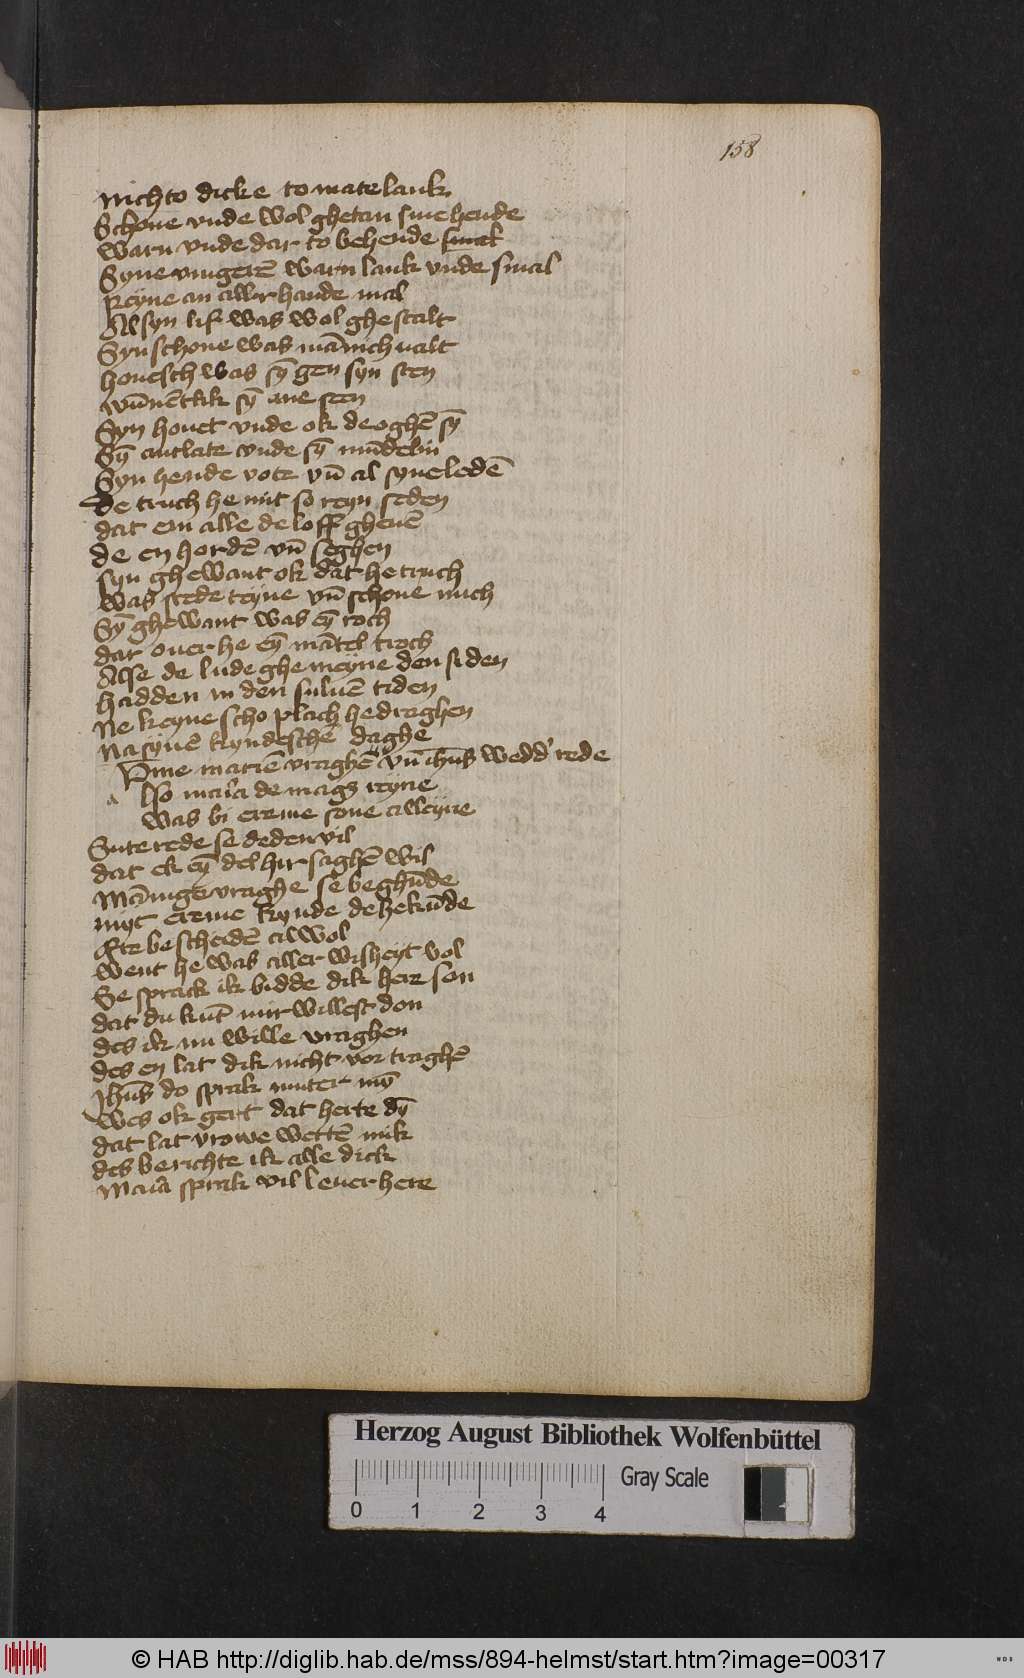 158
nicht to dicke to mate lank
Schone vnde wol ghetan sine hende
warn vnde dar to behende smal
Syne vingerē warn lank vnde smal
Reyne an aller hande mal
Al syn lif was wol ghestalt
Syn schone was mānich ualt
houesch was sȳ gen syn sten
sȳ ane seen
Syn houet vnde ok de oghē sȳ
Sȳ antlate vnde sȳ mūdelin
Syn hende vote vn̄ al syne ledē
de truch he mit so reyn seden
dat em alle de loff gheuē
de en hordē vn̄ seghen
syn ghewant ok dat he truch
was stede reyne vn̄ schone nuch
Sȳ ghewant was eȳ roch
dar ouer he eȳ mātel troch
Alse de lude ghemeyne den siden
hadden in den suluē tiden
Ne keyne scho plach he draghen
Na synē kyndeschē daghe
mariē vraghē vn̄ ihūs wedd' rede
a lso maria de maget reyne
was bi ereme sone alleyne
Sute rede se deden vil
dat ek eȳ del hir saghē wil
Mānige vraghe se beghūde
myt ereme kynde de he kūde
bescheidē al wol
went he was aller wisheyt vol
Se sprack ik bidde dik here son
dat du mir willest don
des ik nu wille vraghen
des en lat dik nicht vor traghē
Jhūs do sprak muter mȳ
wes ok gert dat herte dȳ
dat lat vrowe wettē mik
des berichte ik alle dick
Maria sprak vil leuer here
Herzog August Bibliothek Wolfenbüttel
Gray Scale
0 1 2 3 4
© HAB http://diglib.hab.de/mss/894-helmst/start.htm?image=00317